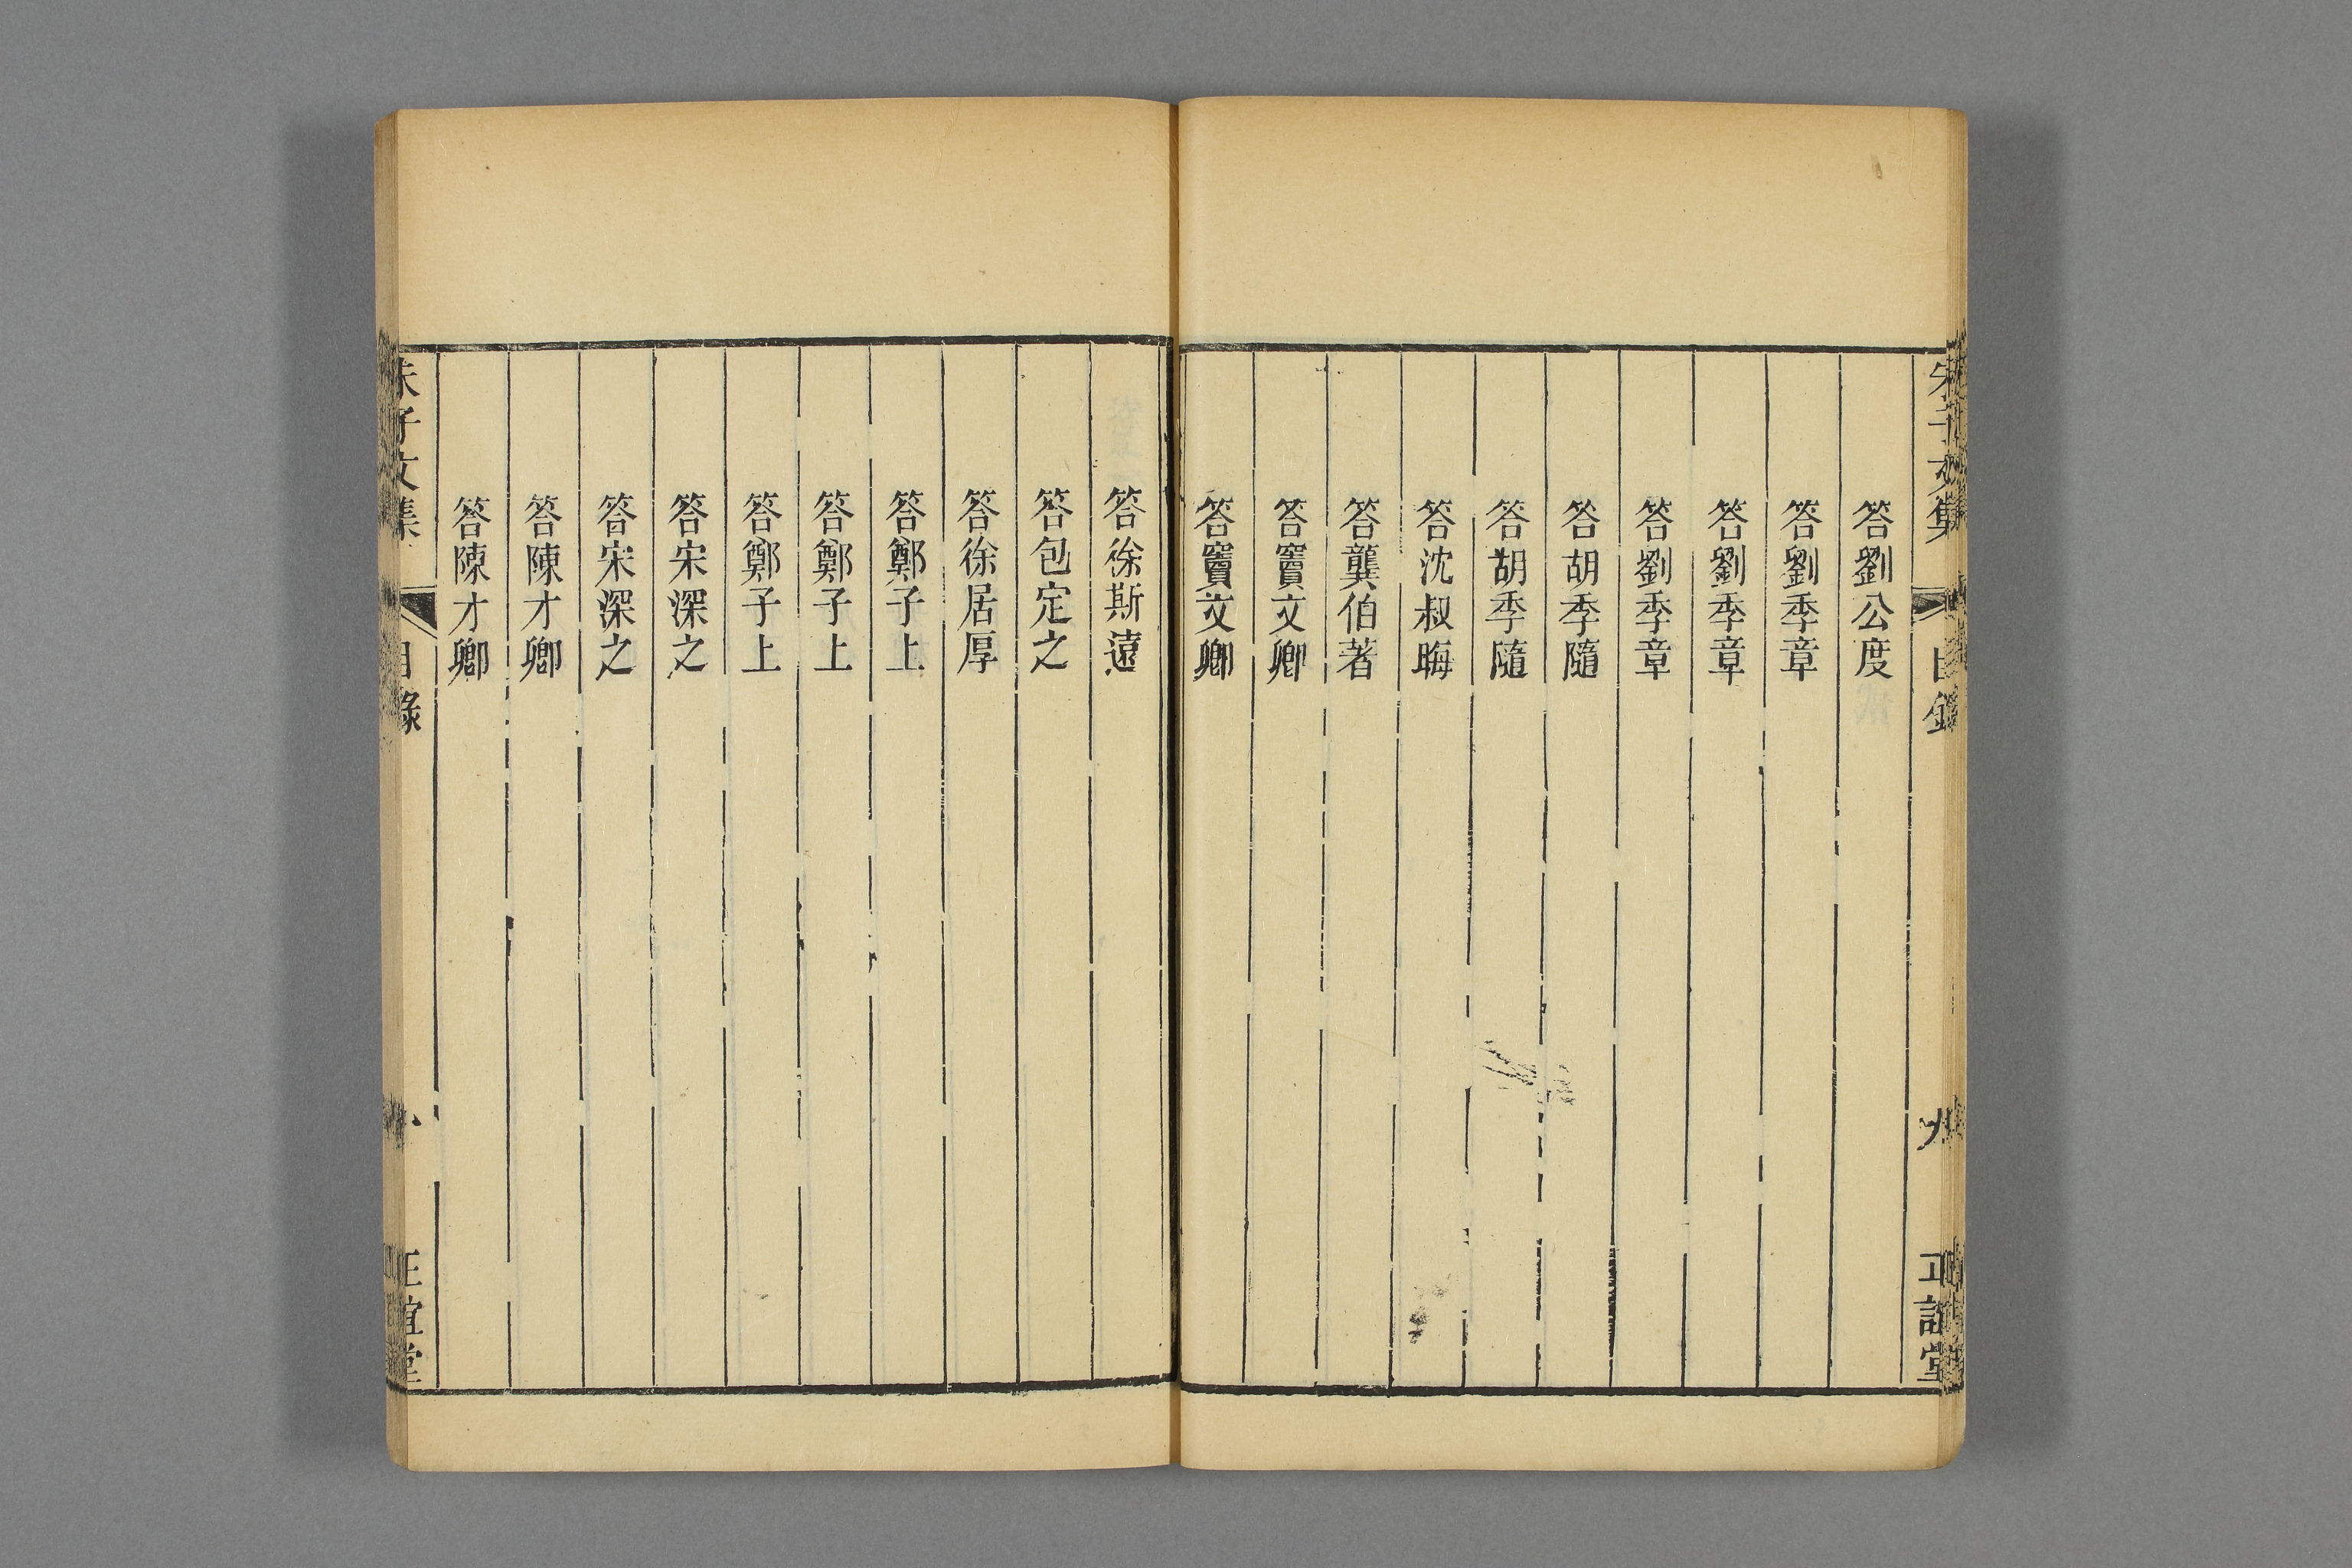 朱子文集
目錄
九
正誼堂
答劉公度
答劉季章
答劉季章
答劉季章
答胡季隨
答胡季隨
答沈叔晦
答龔伯著
答竇文卿
答竇文卿
答徐斯遠
答包定之
答徐居厚
答鄭子上
答鄭子上
答鄭子上
答宋深之
答宋深之
答陳才卿
答陳才卿
朱子文集
目錄
正誼堂